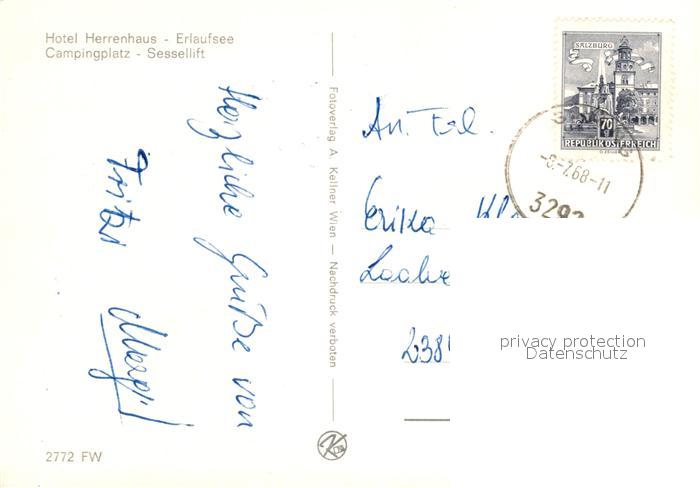 Hotel Herrenhaus - Erlaufsee
Campingplatz - Sessellift
Herzliche Grüße von
Fritzi
Fotoverlag A. Kellner Wien — Nachdruck verboten
2772 FW
SALZBURG
70
REPUBLIK ÖSTERREICH
-8.-7.68-11
An Frl.
Erika
privacy protection
Datenschutz